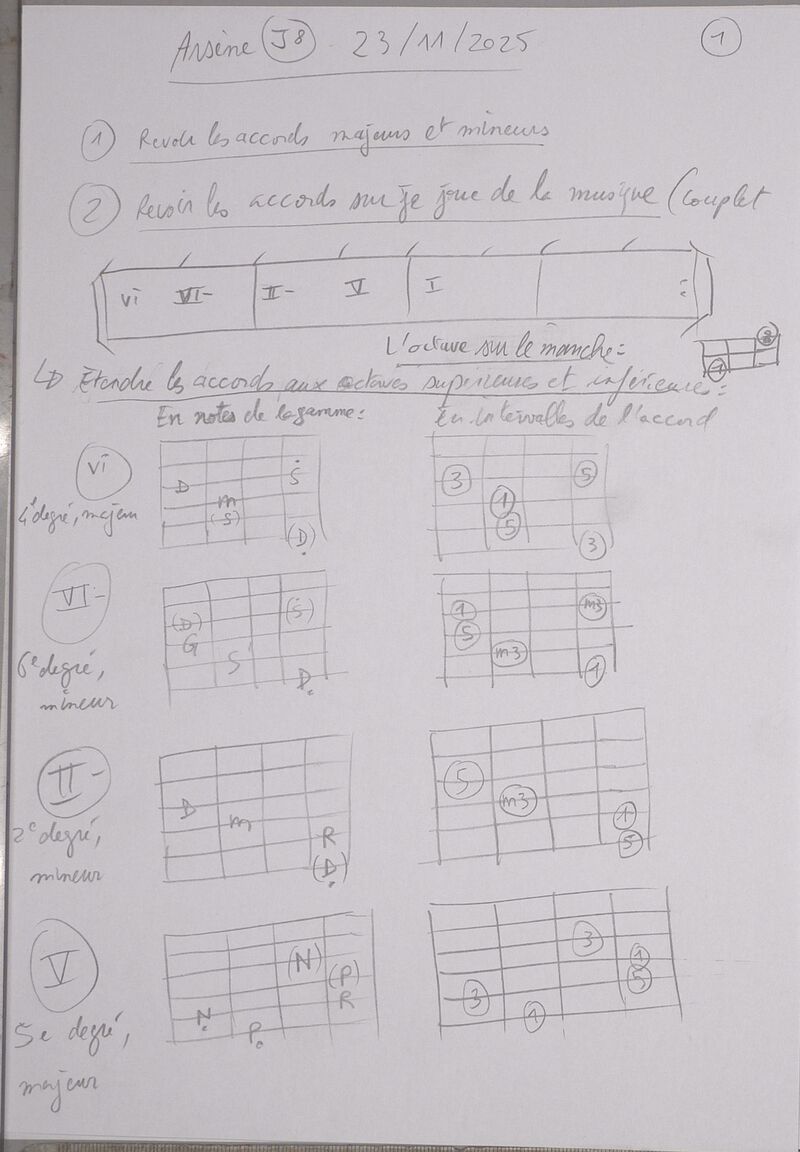 Arsène J8 - 23/11/2025
1
1 Revoir les accords majeurs et mineurs
2 Revoir les accords sur je joue de la musique (couplet
vi VI- II- V I :
L'octave sur le manche:
1 8
↳ Etendre les accords aux octaves supérieures et inférieures:
En notes de la gamme: En intervalles de l'accord
vi
4e degré, majeur
D S
m
(S)
(D)
3 5
1
5
3
VI-
6e degré,
mineur
(D) (S)
G
S
D
1 m3
5
m3
1
II-
2e degré,
mineur
D
m
R
(D)
5
m3
1
5
V
5e degré,
majeur
(N)
(P)
N R
P
3
1
5
3
1